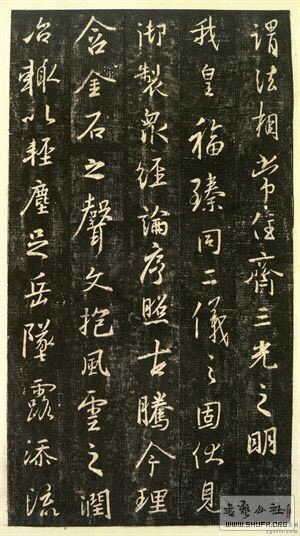 謂法相常住齊三光之明
我皇福臻同二儀之固伏見
御製眾經論序照古騰今理
含金石之聲文抱風雲之潤
治輒以輕塵足岳墜露添流
书艺公社
WWW.SHUFA.ORG